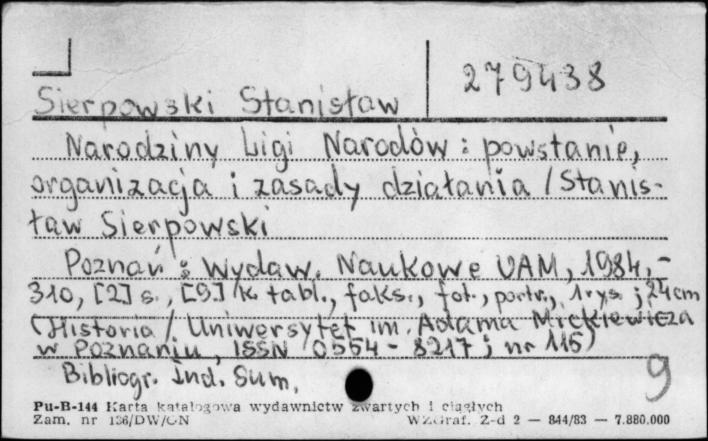 279438
Sierpowski Stanisław
Narodziny Ligi Narodów : powstanie,
organizacja i zasady działania / Stanis-
ław Sierpowski
Poznań : Wydaw. Naukowe UAM, 1984, -
310, [2] s., [9] k. tabl., faks., fot., portr., 1 rys. ; 24 cm
(Historia / Uniwersytet im. Adama Mickiewicza
w Poznaniu, ISSN 0554-8217 ; nr 116)
Bibliogr. Ind. Sum.
9
Pu-B-144 Karta katalogowa wydawnictw zwartych i ciągłych
Zam. nr 136/DW/GN WZGraf. Z-d 2 — 844/83 — 7.880.000